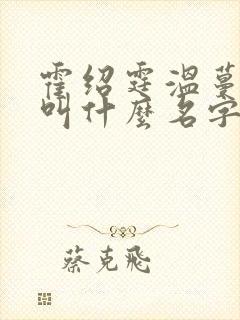 霍绍霆温蔓
叫什麼名字
蔡克飛